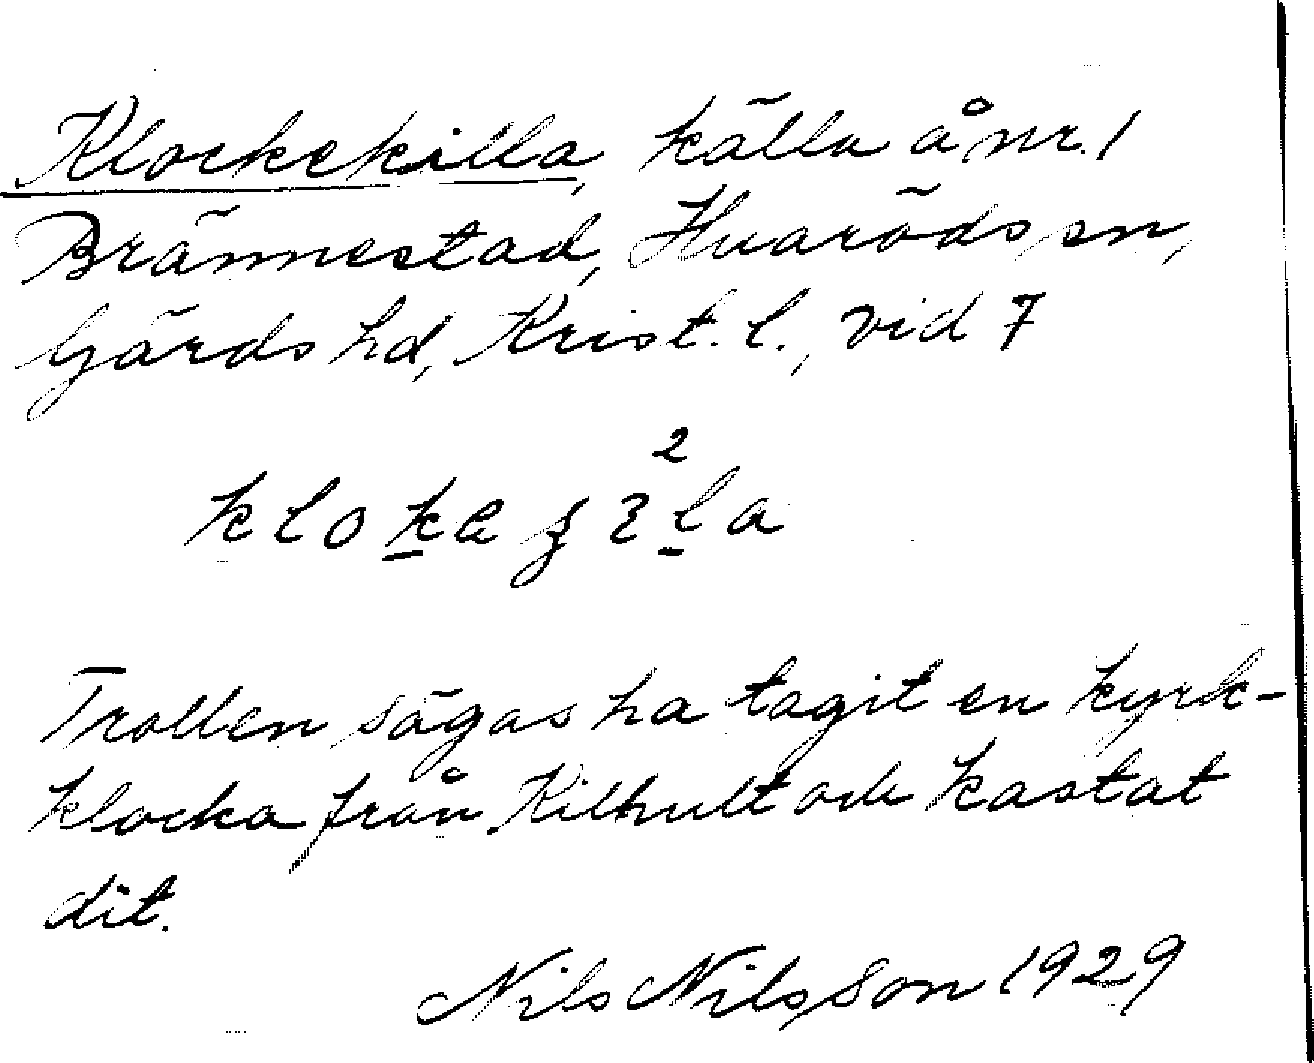 Klockekilla, källa å nr. 1
Brännestad, Huaröds sn,
Gärds hd, Krist. l., vid 7
Trollen sägas ha tagit en kyrk-
klocka från Kilhult och kastat
dit.
Nils Nilsson 1929